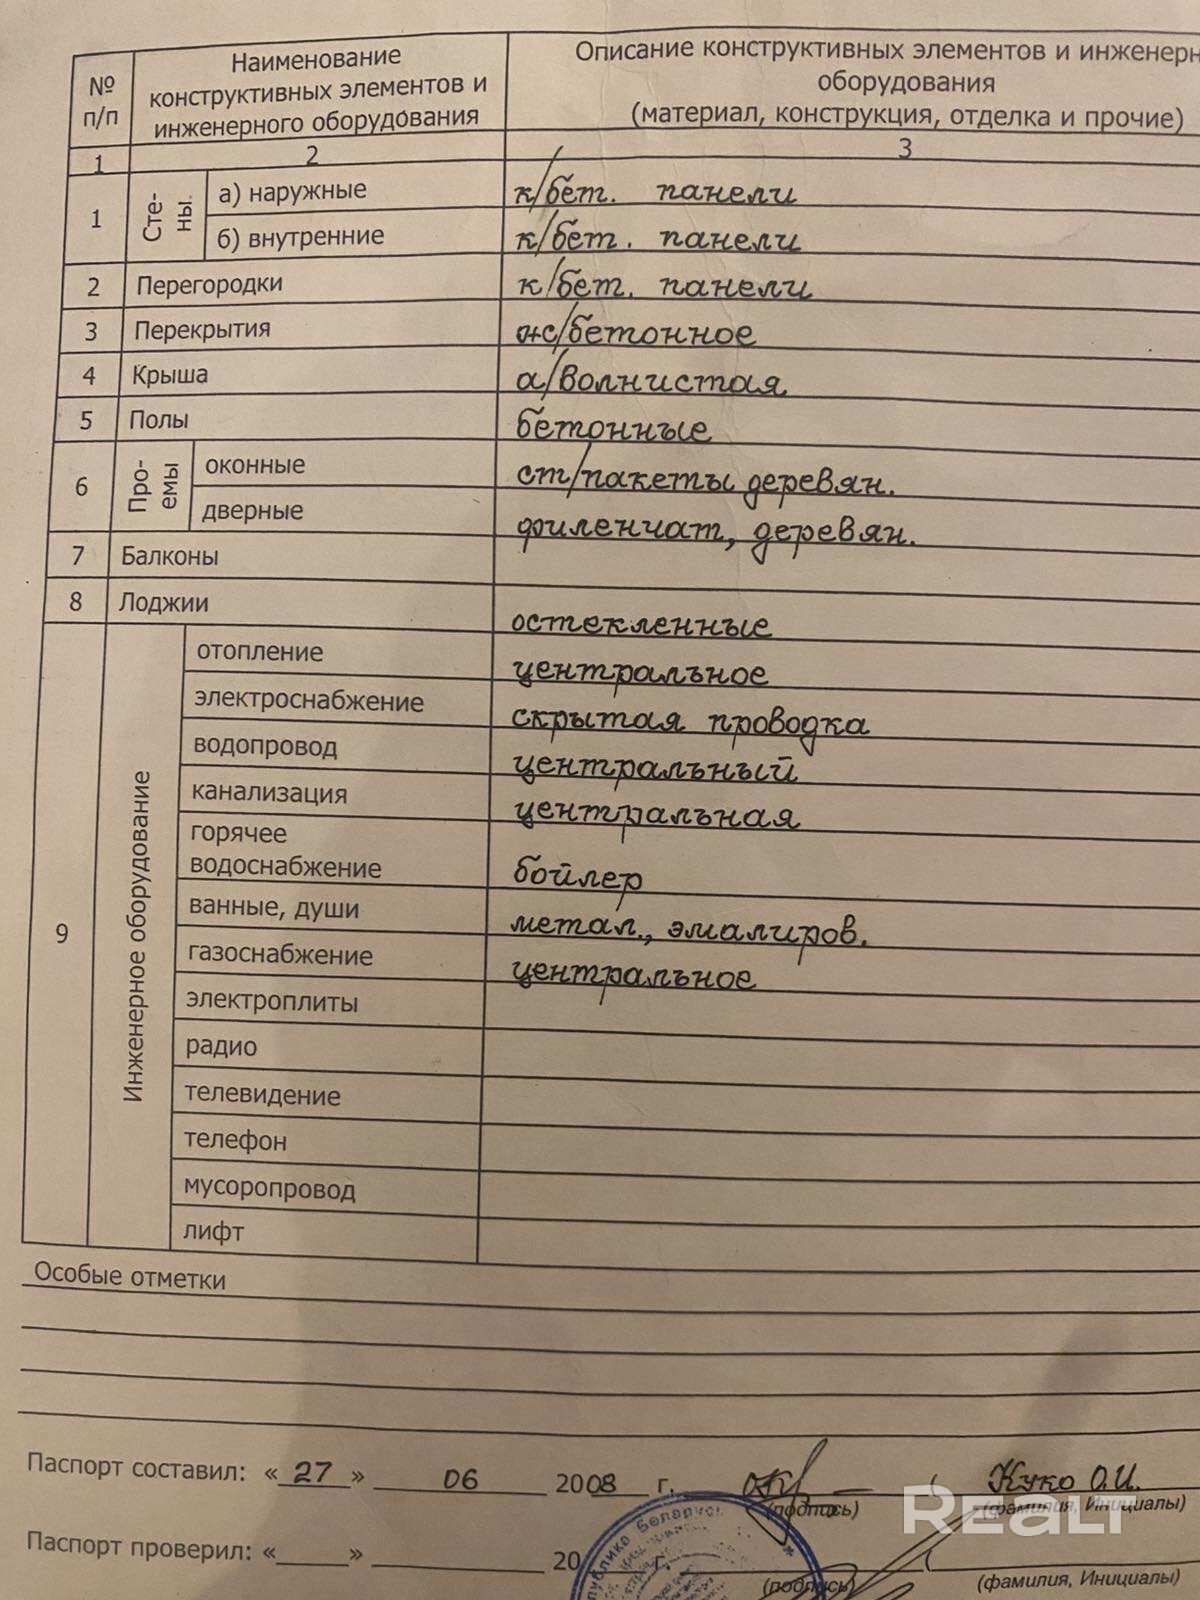 № п/п
Наименование конструктивных элементов и инженерного оборудования
Описание конструктивных элементов и инженерн
оборудования
(материал, конструкция, отделка и прочие)
1 2 3
1 Сте-ны. а) наружные к/бет. панели
б) внутренние к/бет. панели
2 Перегородки к/бет. панели
3 Перекрытия ж/бетонное
4 Крыша а/волнистая
5 Полы бетонные
6 Про-емы оконные ст/пакеты деревян.
дверные филенчат, деревян.
7 Балконы
8 Лоджии остекленные
9 Инженерное оборудование отопление центральное
электроснабжение скрытая проводка
водопровод центральный
канализация центральная
горячее
водоснабжение бойлер
ванные, души метал., эмалиров.
газоснабжение центральное
электроплиты
радио
телевидение
телефон
мусоропровод
лифт
Особые отметки
Паспорт составил: « 27 » 06 2008 г. ( Куко О.И.
(подпись) (фамилия, Инициалы)
Паспорт проверил: « » 20 г. (
(подпись) (фамилия, Инициалы)
Беларусь
Realt